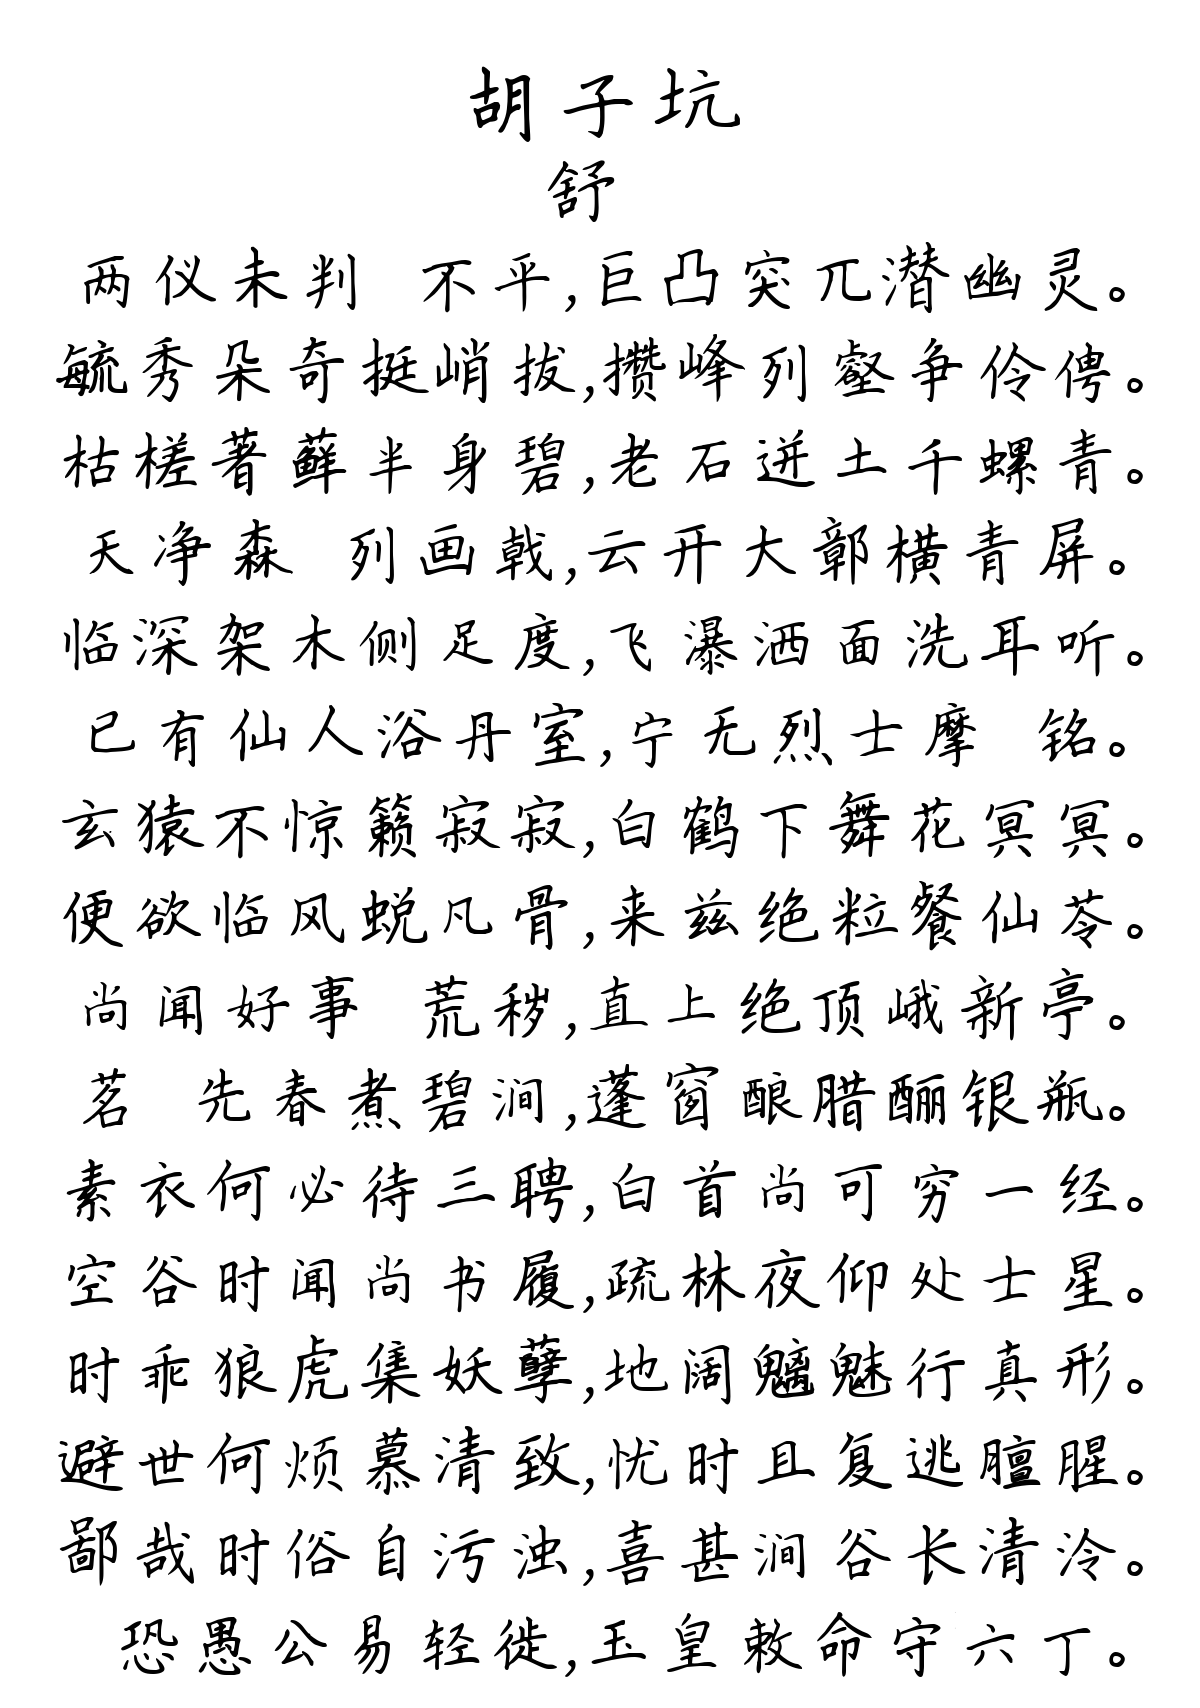 胡子坑
舒
两仪未判 不平,巨凸突兀潜幽灵。
毓秀朵奇挺峭拔,攒峰列壑争伶俜。
枯槎著藓半身碧,老石迸土千螺青。
天净森 列画戟,云开大鄣横青屏。
临深架木侧足度,飞瀑洒面洗耳听。
已有仙人浴丹室,宁无烈士摩 铭。
玄猿不惊籁寂寂,白鹤下舞花冥冥。
便欲临风蜕凡骨,来兹绝粒餐仙苓。
尚闻好事 荒秽,直上绝顶峨新亭。
茗 先春煮碧涧,蓬窗酿腊酾银瓶。
素衣何必待三聘,白首尚可穷一经。
空谷时闻尚书履,疏林夜仰处士星。
时乖狼虎集妖孽,地阔魑魅行真形。
避世何烦慕清致,忧时且复逃膻腥。
鄙哉时俗自污浊,喜甚涧谷长清泠。
恐愚公易轻徙,玉皇敕命守六丁。